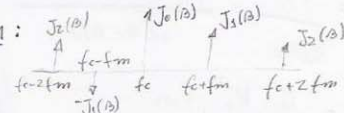 1:
J₂(β) J₀(β) J₁(β) J₂(β)
fc-2fm fc-fm fc fc+fm fc+2fm
-J₁(β)